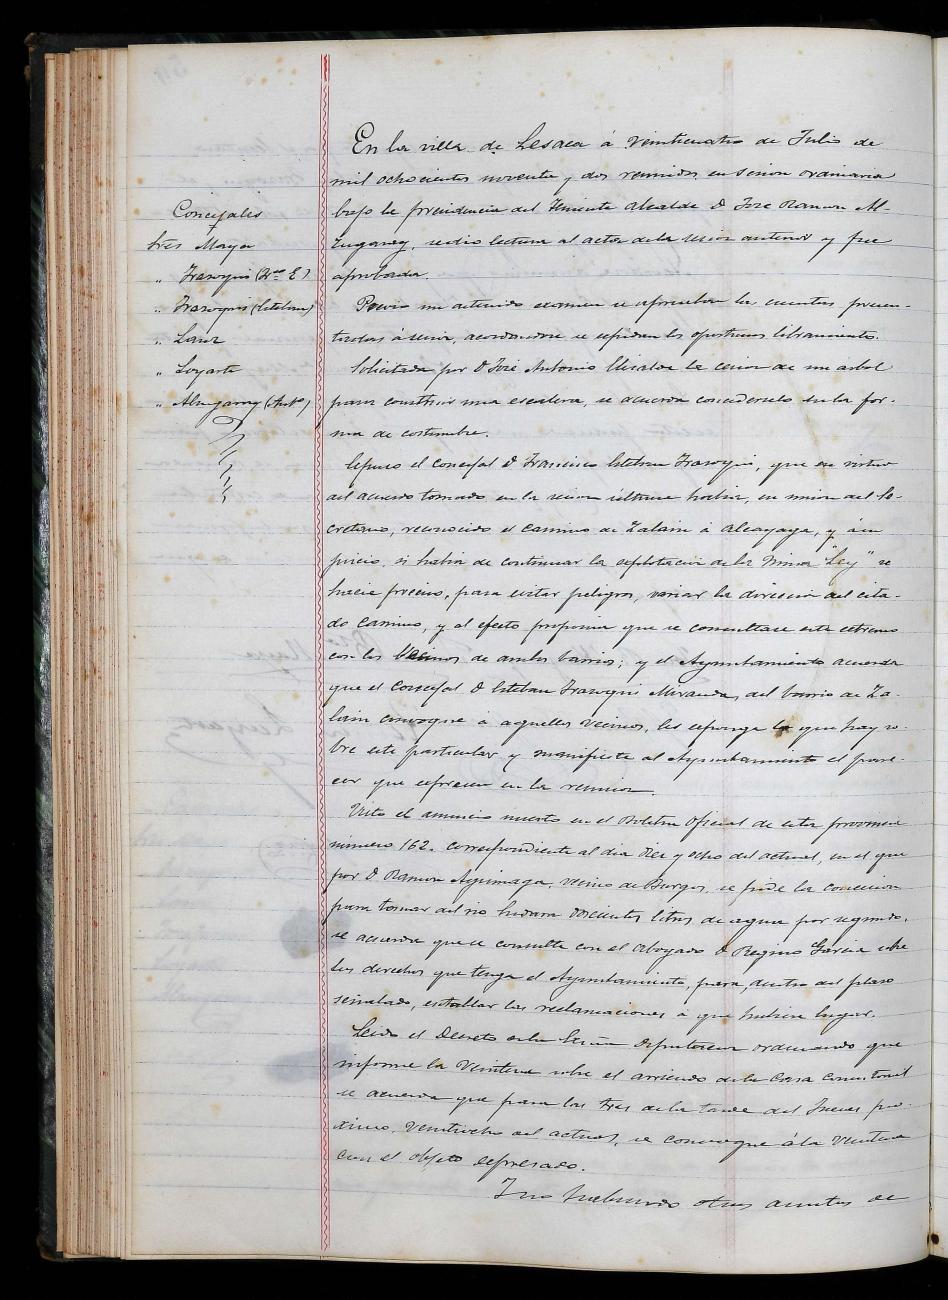 En la villa de Lesaca á veinticuatro de Julio de
mil ochocientos noventa y dos reunidos en sesion ordinaria
bajo la presidencia del Teniente Alcalde D José Ramon Al-
zugaray, se dio lectura al acta de la sesion anterior y fue
aprobada.
Concejales
Sres Maya
" Irazoqui (Fco E.)
" Irazoqui (Esteban)
" Sanz
" Loyarte
" Alzugaray (Anto)
Previo un detenido examen se aprueban las cuentas presen-
tadas á sesion, acordandose se espidan los oportunos libramientos.
Solicitada por D José Antonio la cesion de un arbol
para construir una escalera, se acuerda concederselo en la for-
ma de costumbre.
Espuso el concejal D Francisco Esteban Irazoqui, que en virtud
del acuerdo tomado en la sesion última habia, en union del Se-
cretario, reconocido el camino de Zalain á Alcayaga, y á su
juicio, si habia de continuar la esplotacion de la Mina "Ley" se
hacia preciso, para evitar peligros, variar la direccion del cita-
do camino, y al efecto proponia que se consultase este estremo
con los Vecinos de ambos barrios; y el Ayuntamiento acuerda
que el Concejal D Esteban Irazoqui Miranda, del barrio de Za-
lain convoque á aquellos vecinos, les esponga lo que hay so-
bre este particular y manifieste al Ayuntamiento el pare-
cer que espresen en la reunion.
Visto el anuncio inserto en el Boletin Oficial de esta provincia
número 162. correspondiente al dia diez y ocho del actual, en el que
por D Ramon Aguinaga, vecino de Burgos, se pide la concesion
para tomar del rio doscientos litros de agua por segundo,
se acuerda que se consulte con el Abogado D Regino Garcia sobre
los derechos que tenga el Ayuntamiento, para, dentro del plazo
señalado, entablar las reclamaciones á que hubiere lugar.
Leido el Decreto de la Escma Diputacion ordenando que
informe la Veintena sobre el arriendo de la Casa Consistorial
se acuerda que para las tres de la tarde del Jueves pro-
ximo, veintiocho del actual, se convoque á la Veintena
con el objeto espresado.
Y no habiendo otros asuntos de